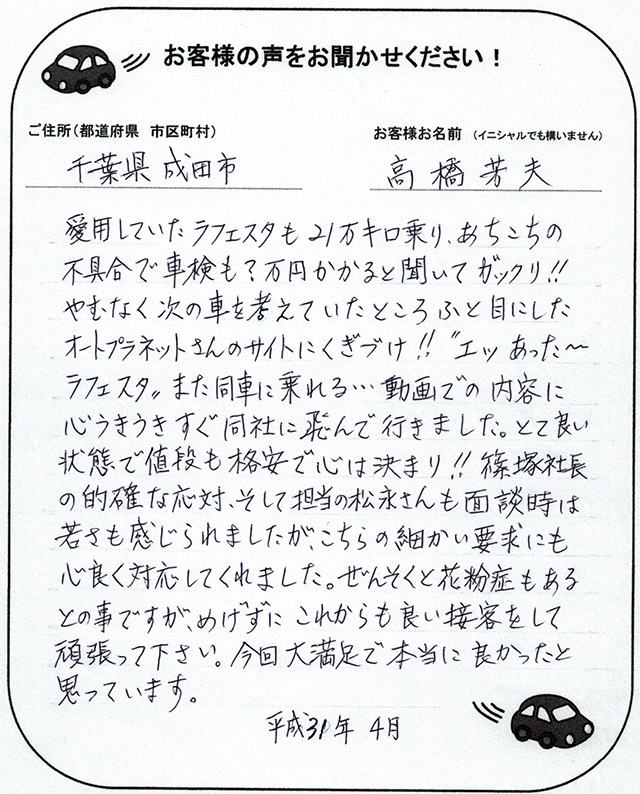 お客様の声をお聞かせください！
ご住所（都道府県　市区町村）
お客様お名前　（イニシャルでも構いません）
千葉県 成田市
高橋芳夫
愛用していたラフェスタも21万キロ乗り、あちこちの
不具合で車検も？万円かかると聞いてガックリ!!
やむなく次の車を考えていたところふと目にした
オートプラネットさんのサイトにくぎづけ!!〝エッ あった〜
ラフェスタ〟また同車に乗れる…動画での内容に
心うきうきすぐ同社に飛んで行きました。とて良い
状態で値段も格安で心は決まり!! 篠塚社長
の的確な応対、そして担当の松永さんも面談時は
若さも感じられましたが、こちらの細かい要求にも
心良く対応してくれました。ぜんそくと花粉症もある
との事ですが、めげずに これからも良い接客をして
頑張って下さい。今回大満足で本当に良かったと
思っています。
平成31年 4月